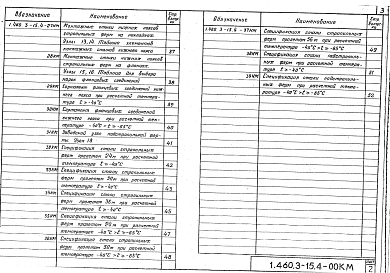 Обозначение
Наименование
Стр.
1.460.3-15.4-27КМ
Монтажные стыки нижних поясов
стропильных ферм на накладках.
Узлы 13, 14. Таблица элементов
монтажных стыков нижних поясов
37
28КМ
Монтажные стыки нижних поясов
стропильных ферм на фланцах.
Узлы 15, 16. Таблица для выбора
38
29КМ
Сортамент фланцевых соединений ниж-
него пояса при расчетной темпера-
туре t ≥ -40°С
39
Сортамент фланцевых соединений
нижнего пояса при расчетной тем-
пературе -40°С > t ≥ -65°С
40
Заводской узел подстропильной фер-
мы. Узел 18
41
Спецификация стали стропильных
ферм пролетом 24м при расчетной
температуре t ≥ -40°С
42
Спецификация стали стропильных
ферм пролетом 30м при расчетной
температуре t ≥ -40°С
43
Спецификация стали стропильных
ферм пролетом 36м при расчетной
температуре t ≥ -40°С
45
Спецификация стали стропильных
ферм пролетом 24м при расчетной
температуре -40°С > t ≥ -65°С
47
Спецификация стали стропильных
ферм пролетом 30м при расчетной
температуре -40°С > t ≥ -65°С
48
Обозначение
Наименование
Стр.
1.460.3-15.4-37КМ
Спецификация стали стропильных
ферм пролетом 36м при расчетной
температуре -40°С > t ≥ -65°С
49
Спецификация стали подстропиль-
ных ферм при расчетной темпера-
туре t ≥ -40°С
51
Спецификация стали подстропильных
ферм при расчетной температуре
-40°С > t ≥ -65°С
52
3
1.460.3-15.4-00КМ
Лист
2